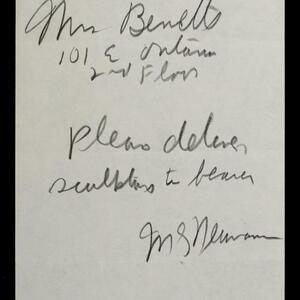 Mrs Benetts
101 E Ontario
2nd Floor
Please deliver
sculpture to bearer
M G Neumann